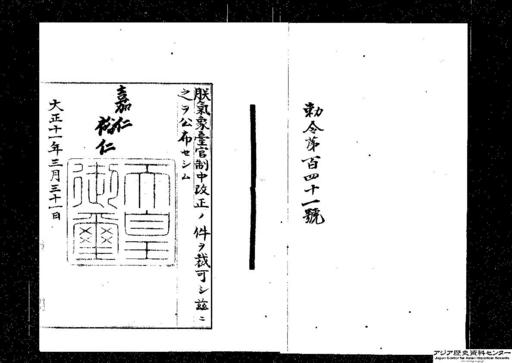 勅令第百四十一號
朕氣象臺官制中改正ノ件ヲ裁可シ茲ニ
之ヲ公布セシム
嘉仁
裕仁
天皇
御璽
大正十一年三月三十一日
アジア歴史資料センター
Japan Center for Asian Historical Records